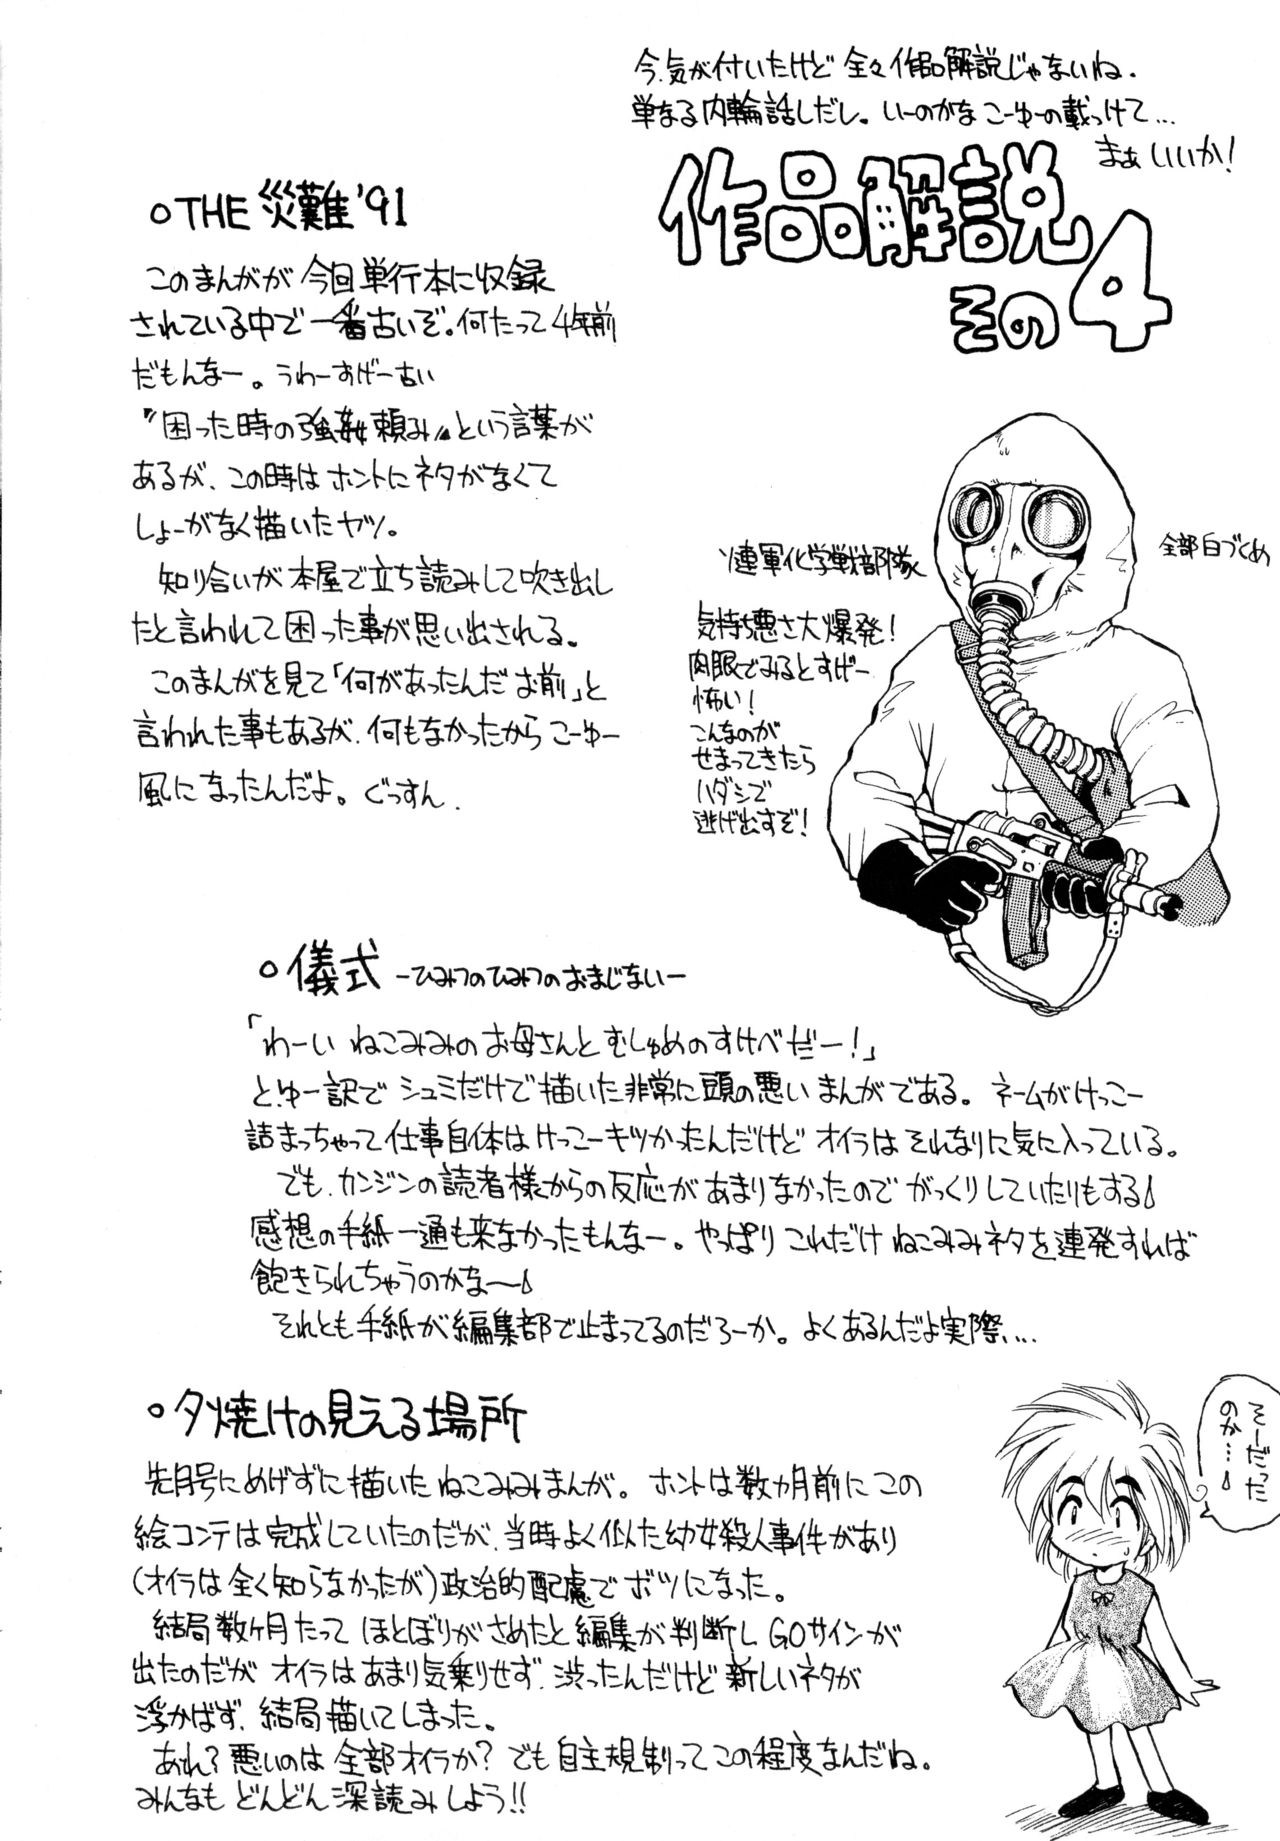 今、気が付いたけど 全々作品解説じゃないね.
単なる内輪話しだし。いーのかな こーゆーの載っけて…
まぁ いいか!
作品解説
その4
○THE 災難'91
このまんがが 今回単行本に収録
されている中で 一番古いぞ。何たって 4年前
だもんなー。うわーすげー古い
〝困った時の強姦頼み〟という言葉が
あるが、この時は ホントにネタがなくて
しょーがなく描いたヤツ。
知り合いが 本屋で立ち読みして吹き出し
たと言われて 困った事が 思い出される。
このまんがを見て「何があったんだ お前」と
言われた事もあるが、何もなかったから こーゆー
風になったんだよ。ぐっすん.
ソ連軍化学戦部隊
全部白づくめ
気持ち悪さ大爆発!
肉眼でみるとすげー
怖い!
こんなのが
せまってきたら
ハダシで
逃げ出すぞ!
○儀式 -ひみつのひみつのおまじない-
「わーい ねこみみのお母さんと むしゅめのすけべだー!」
と、ゆー訳で シュミだけで描いた非常に頭の悪い まんがである。 ネームがけっこー
詰まっちゃって 仕事自体は けっこーキツかったんだけど オイラは それなりに気に入っている。
でも、カンジンの読者様からの反応が あまりなかったので がっくりしていたりもする
感想の手紙一通も来なかったもんなー。やっぱり これだけ ねこみみネタを連発すれば
飽きられちゃうのかな〜
それとも手紙が編集部で止まってるのだろーか。よくあるんだよ実際…
○夕焼けの見える場所
先月号にめげずに描いた ねこみみまんが。 ホントは数カ月前に この
絵コンテは完成していたのだが、当時よく似た幼女殺人事件があり
(オイラは全く知らなかったが)政治的配慮で ボツになった。
結局数ヶ月たって ほとぼりがさめたと 編集が判断し GOサインが
出たのだが オイラはあまり気乗りせず、渋ったんだけど 新しいネタが
浮かばず、結局描いてしまった。
あれ?悪いのは 全部オイラか? でも 自主規制って この程度なんだね。
みんなも どんどん深読みしよう!!
そーだった
のか…